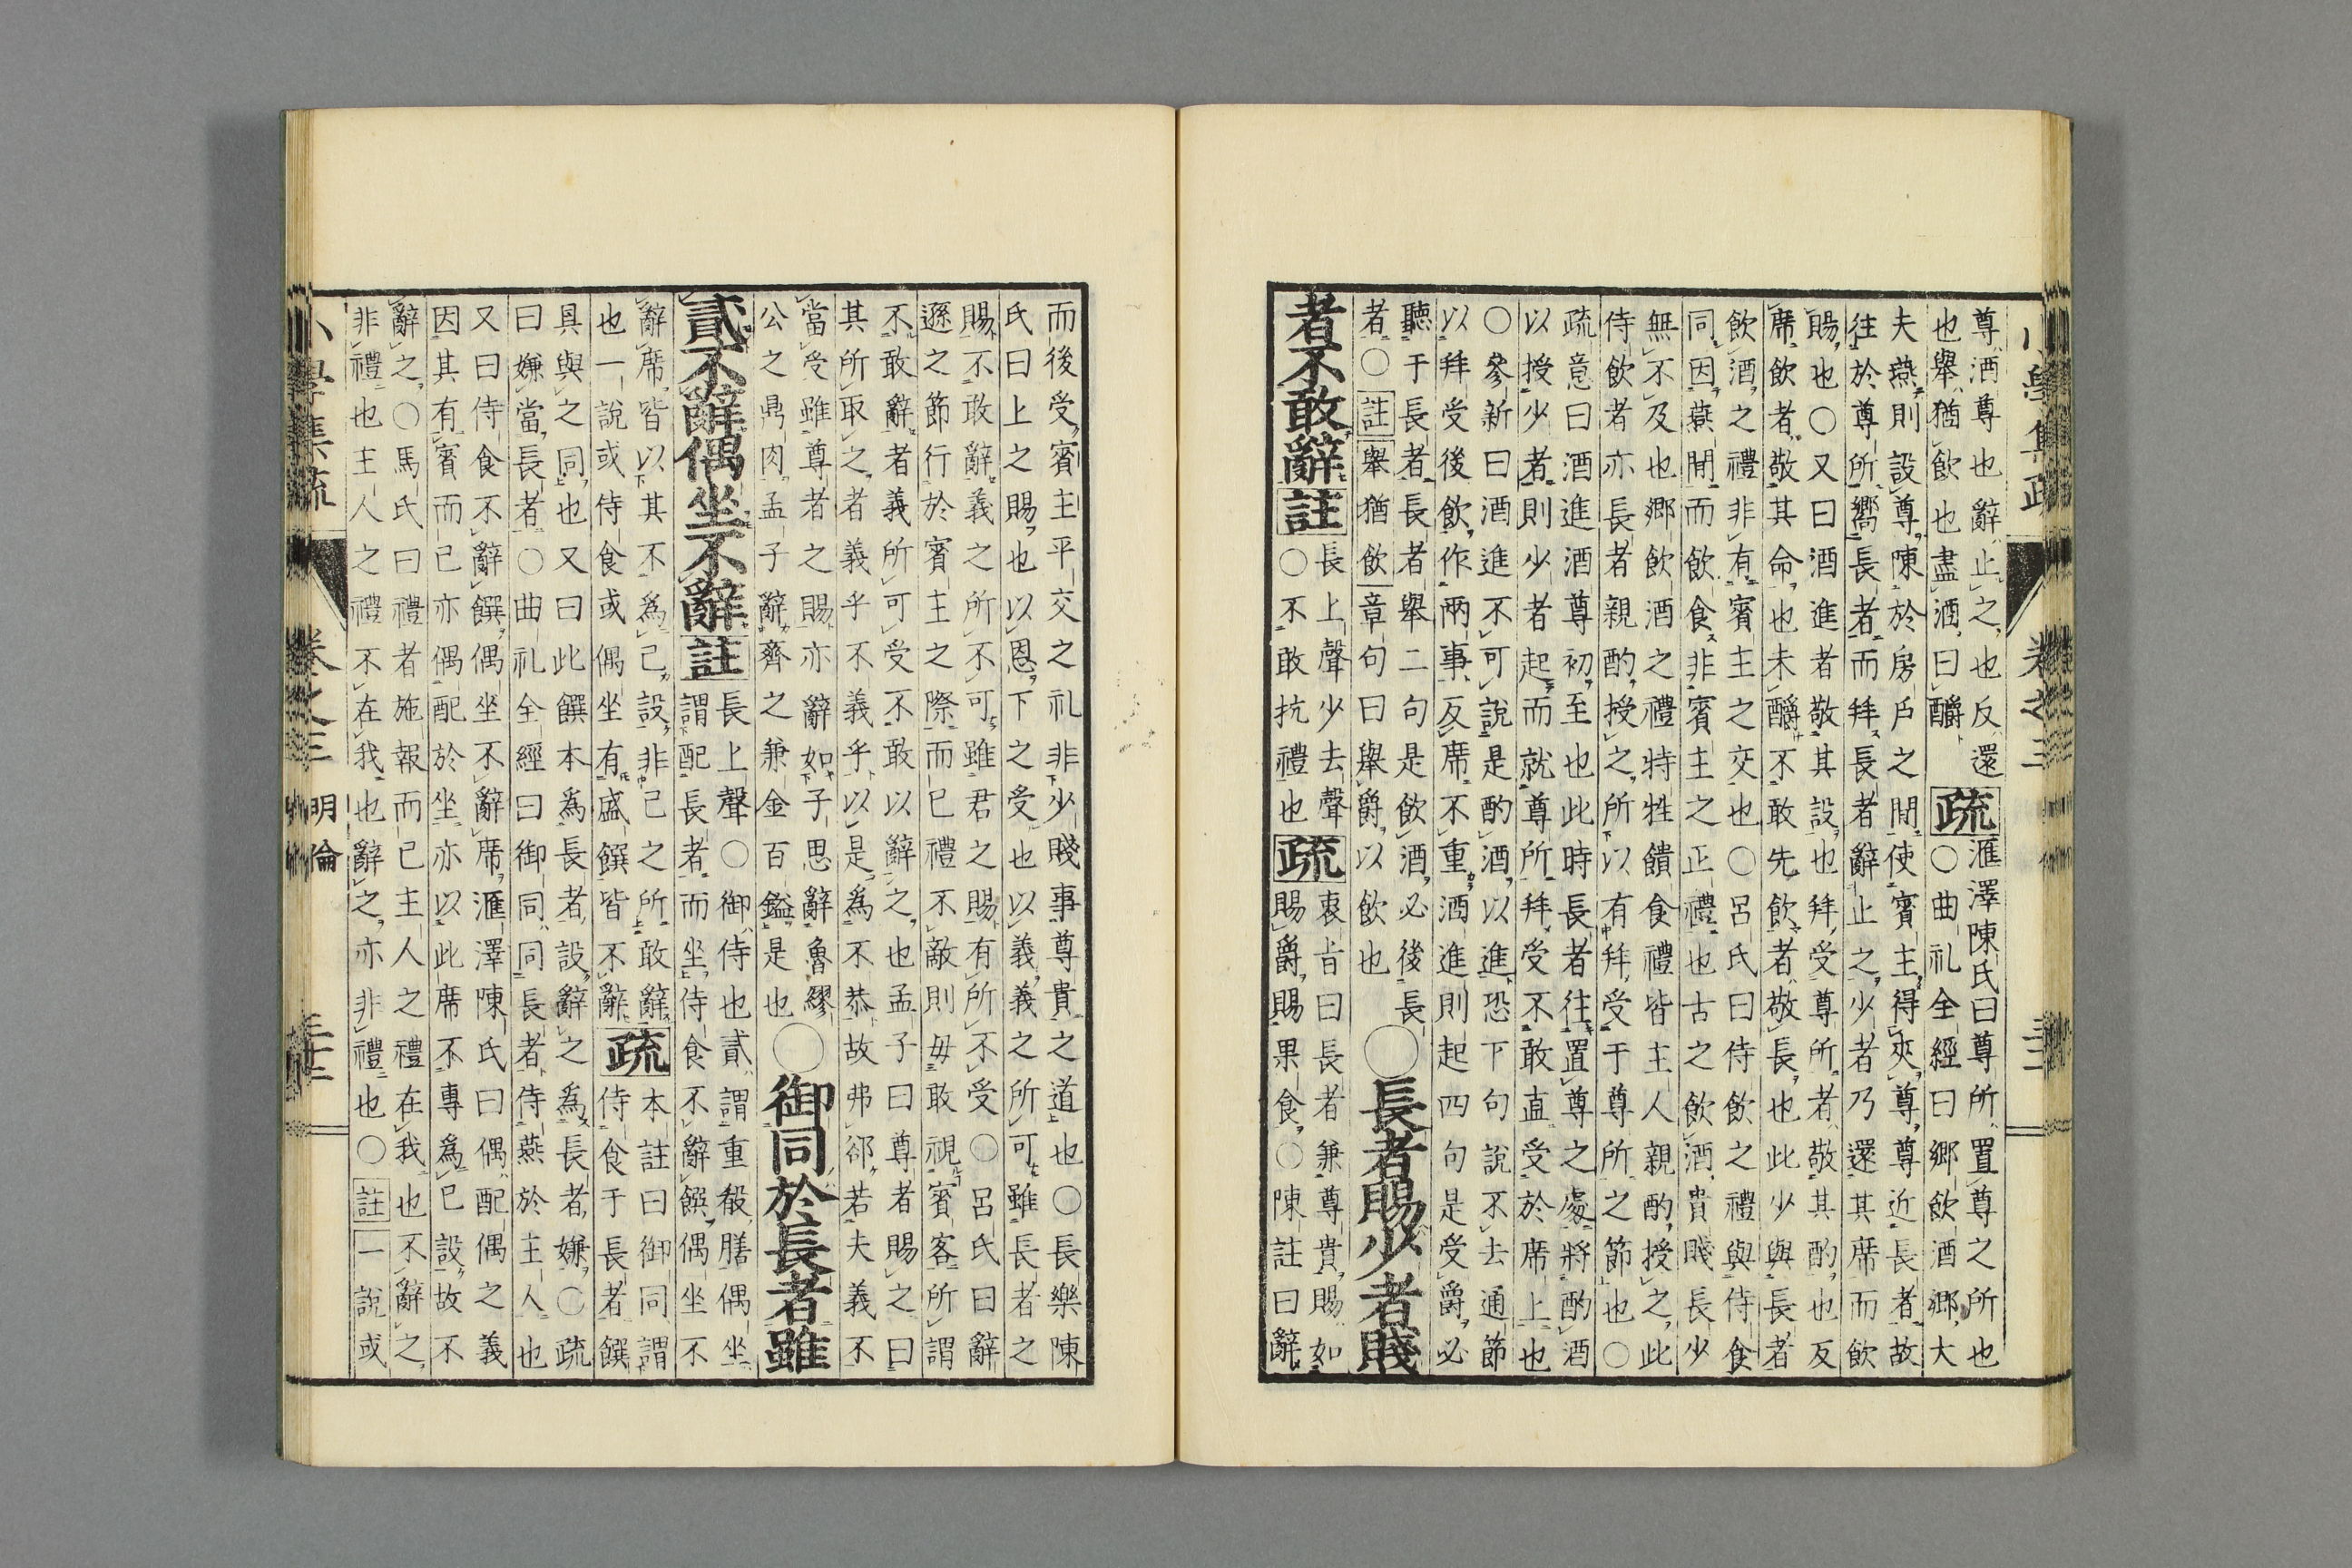 尊酒尊也辭止之也反還疏滙澤陳氏曰尊所置尊之所也
也舉猶飲也盡酒曰釂○曲礼全經曰鄉飲酒鄉大
夫燕則設尊陳於房戶之間使賓主得夾尊尊近長者故
往於尊所嚮長者而拜長者辭止之少者乃還其席而飲
賜也○又曰酒進者敬其設也拜受尊所者敬其酌也反
席飲者敬其命也未釂不敢先飲者敬長也此少與長者
飲酒之禮非有賓主之交也○呂氏曰侍飲之禮與侍食
同因燕間而飲食非賓主之正禮也古之飲酒貴賤長少
無不及也鄉飲酒之禮特牲饋食禮皆主人親酌授之此
侍飲者亦長者親酌授之所以有拜受于尊所之節也○
疏意曰酒進酒尊初至也此時長者往置尊之處將酌酒
以授少者則少者起而就尊所拜受不敢直受於席上也
○參新曰酒進不可說是酌酒以進恐下句說不去通節
以拜受後飲作兩事反席不重酒進則起四句是受爵必
聽于長者長者舉二句是飲酒必後長
者○註舉猶飲章句曰舉爵以飲也○長者賜少者賤
者不敢辭註長上聲少去聲○不敢抗禮也疏衷旨曰長者兼尊貴賜如賜爵賜果食○陳註曰辭
而後受賓主平交之礼非少賤事尊貴之道也○長樂陳
氏曰上之賜也以恩下之受也以義義之所可雖長者之
賜不敢辭義之所不可雖君之賜有所不受○呂氏曰辭
遜之節行於賓主之際而已禮不敵則毋敢視賓客所謂
不敢辭者義所可受不敢以辭之也孟子曰尊者賜之曰
其所取之者義乎不義乎以是爲不恭故弗郤若夫義不
當受雖尊者之賜亦辭如子思辭魯繆
公之鼎肉孟子辭齊之兼金百鎰是也○御同於長者雖
貳不辭偶坐不辭註長上聲○御侍也貳謂重殽膳偶坐謂配長者而坐侍食不辭饌偶坐不
辭席皆以其不爲己設非己之所敢辭本註曰御同謂
也一說或侍食或偶坐有盛饌皆不辭疏侍食于長者饌
具與之同也又曰此饌本爲長者設辭之爲長者嫌○疏
曰嫌當長者○曲礼全經曰御同同長者侍燕於主人也
又曰侍食不辭饌偶坐不辭席滙澤陳氏曰偶配偶之義
因其有賓而已亦偶配於坐亦以此席不專爲己設故不
辭之○馬氏曰禮者施報而已主人之禮在我也不辭之
非禮也主人之禮不在我也辭之亦非禮也○註一說或
小學集疏 卷之三 明倫